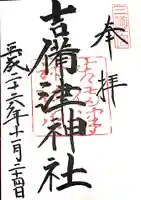 奉拝
吉備津神社
平成二十六年十一月二十四日